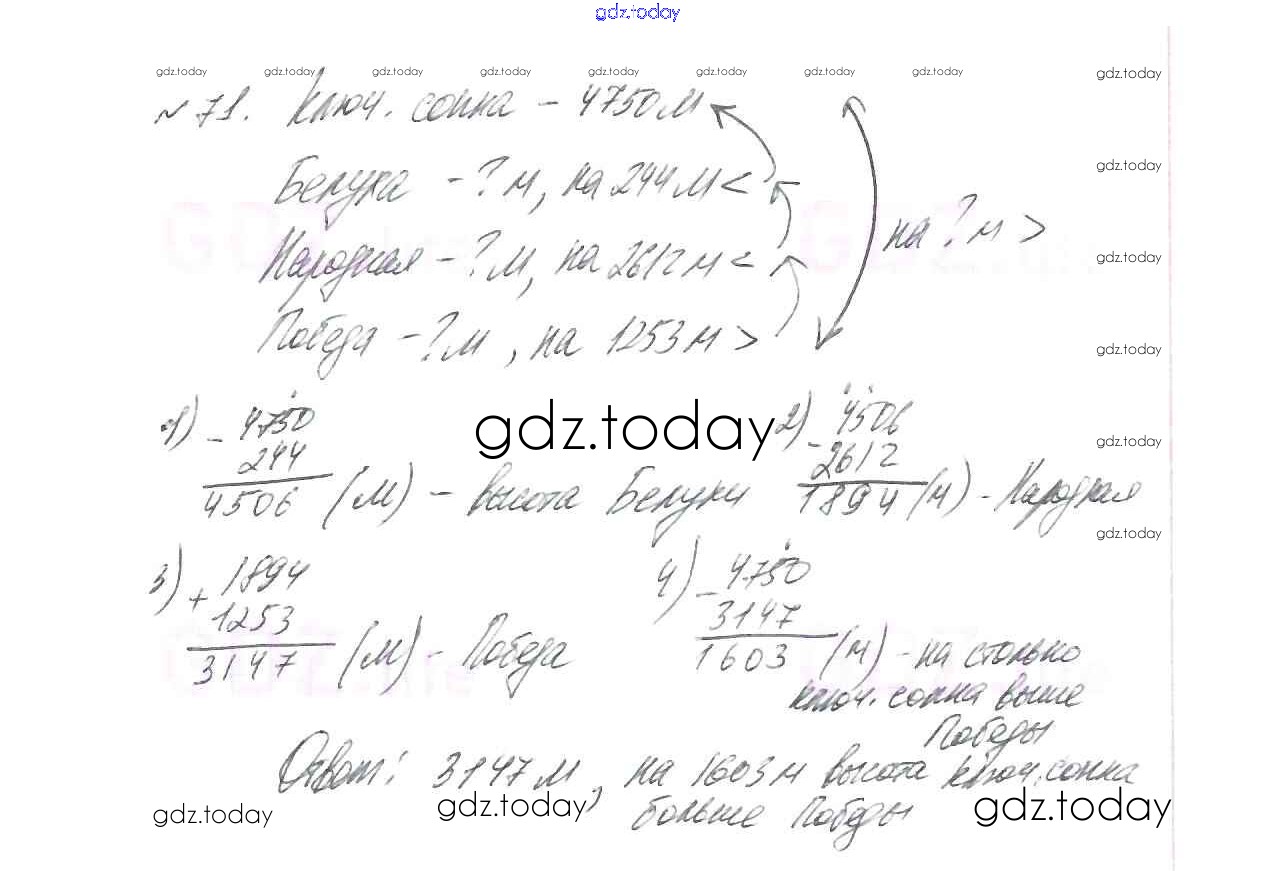 gdz.today
gdz.today gdz.today gdz.today gdz.today gdz.today gdz.today gdz.today gdz.today gdz.today
№71. Ключ. сопка - 4750 м
gdz.today
Белуха - ? м, на 244 м <
на ? м >
Народная - ? м, на 2612 м <
gdz.today
Победа - ? м, на 1253 м >
gdz.today
1) - 4750
244
4506 (м) - высота Белухи
gdz.today
2) - 4506
2612
1894 (м) - Народная
gdz.today
gdz.today
3) + 1894
1253
3147 (м) - Победа
4) - 4750
3147
1603 (м) - на столько
ключ. сопка выше
Победы
Ответ: 3147 м, на 1603 м высота ключ. сопка
больше Победы
gdz.today gdz.today gdz.today